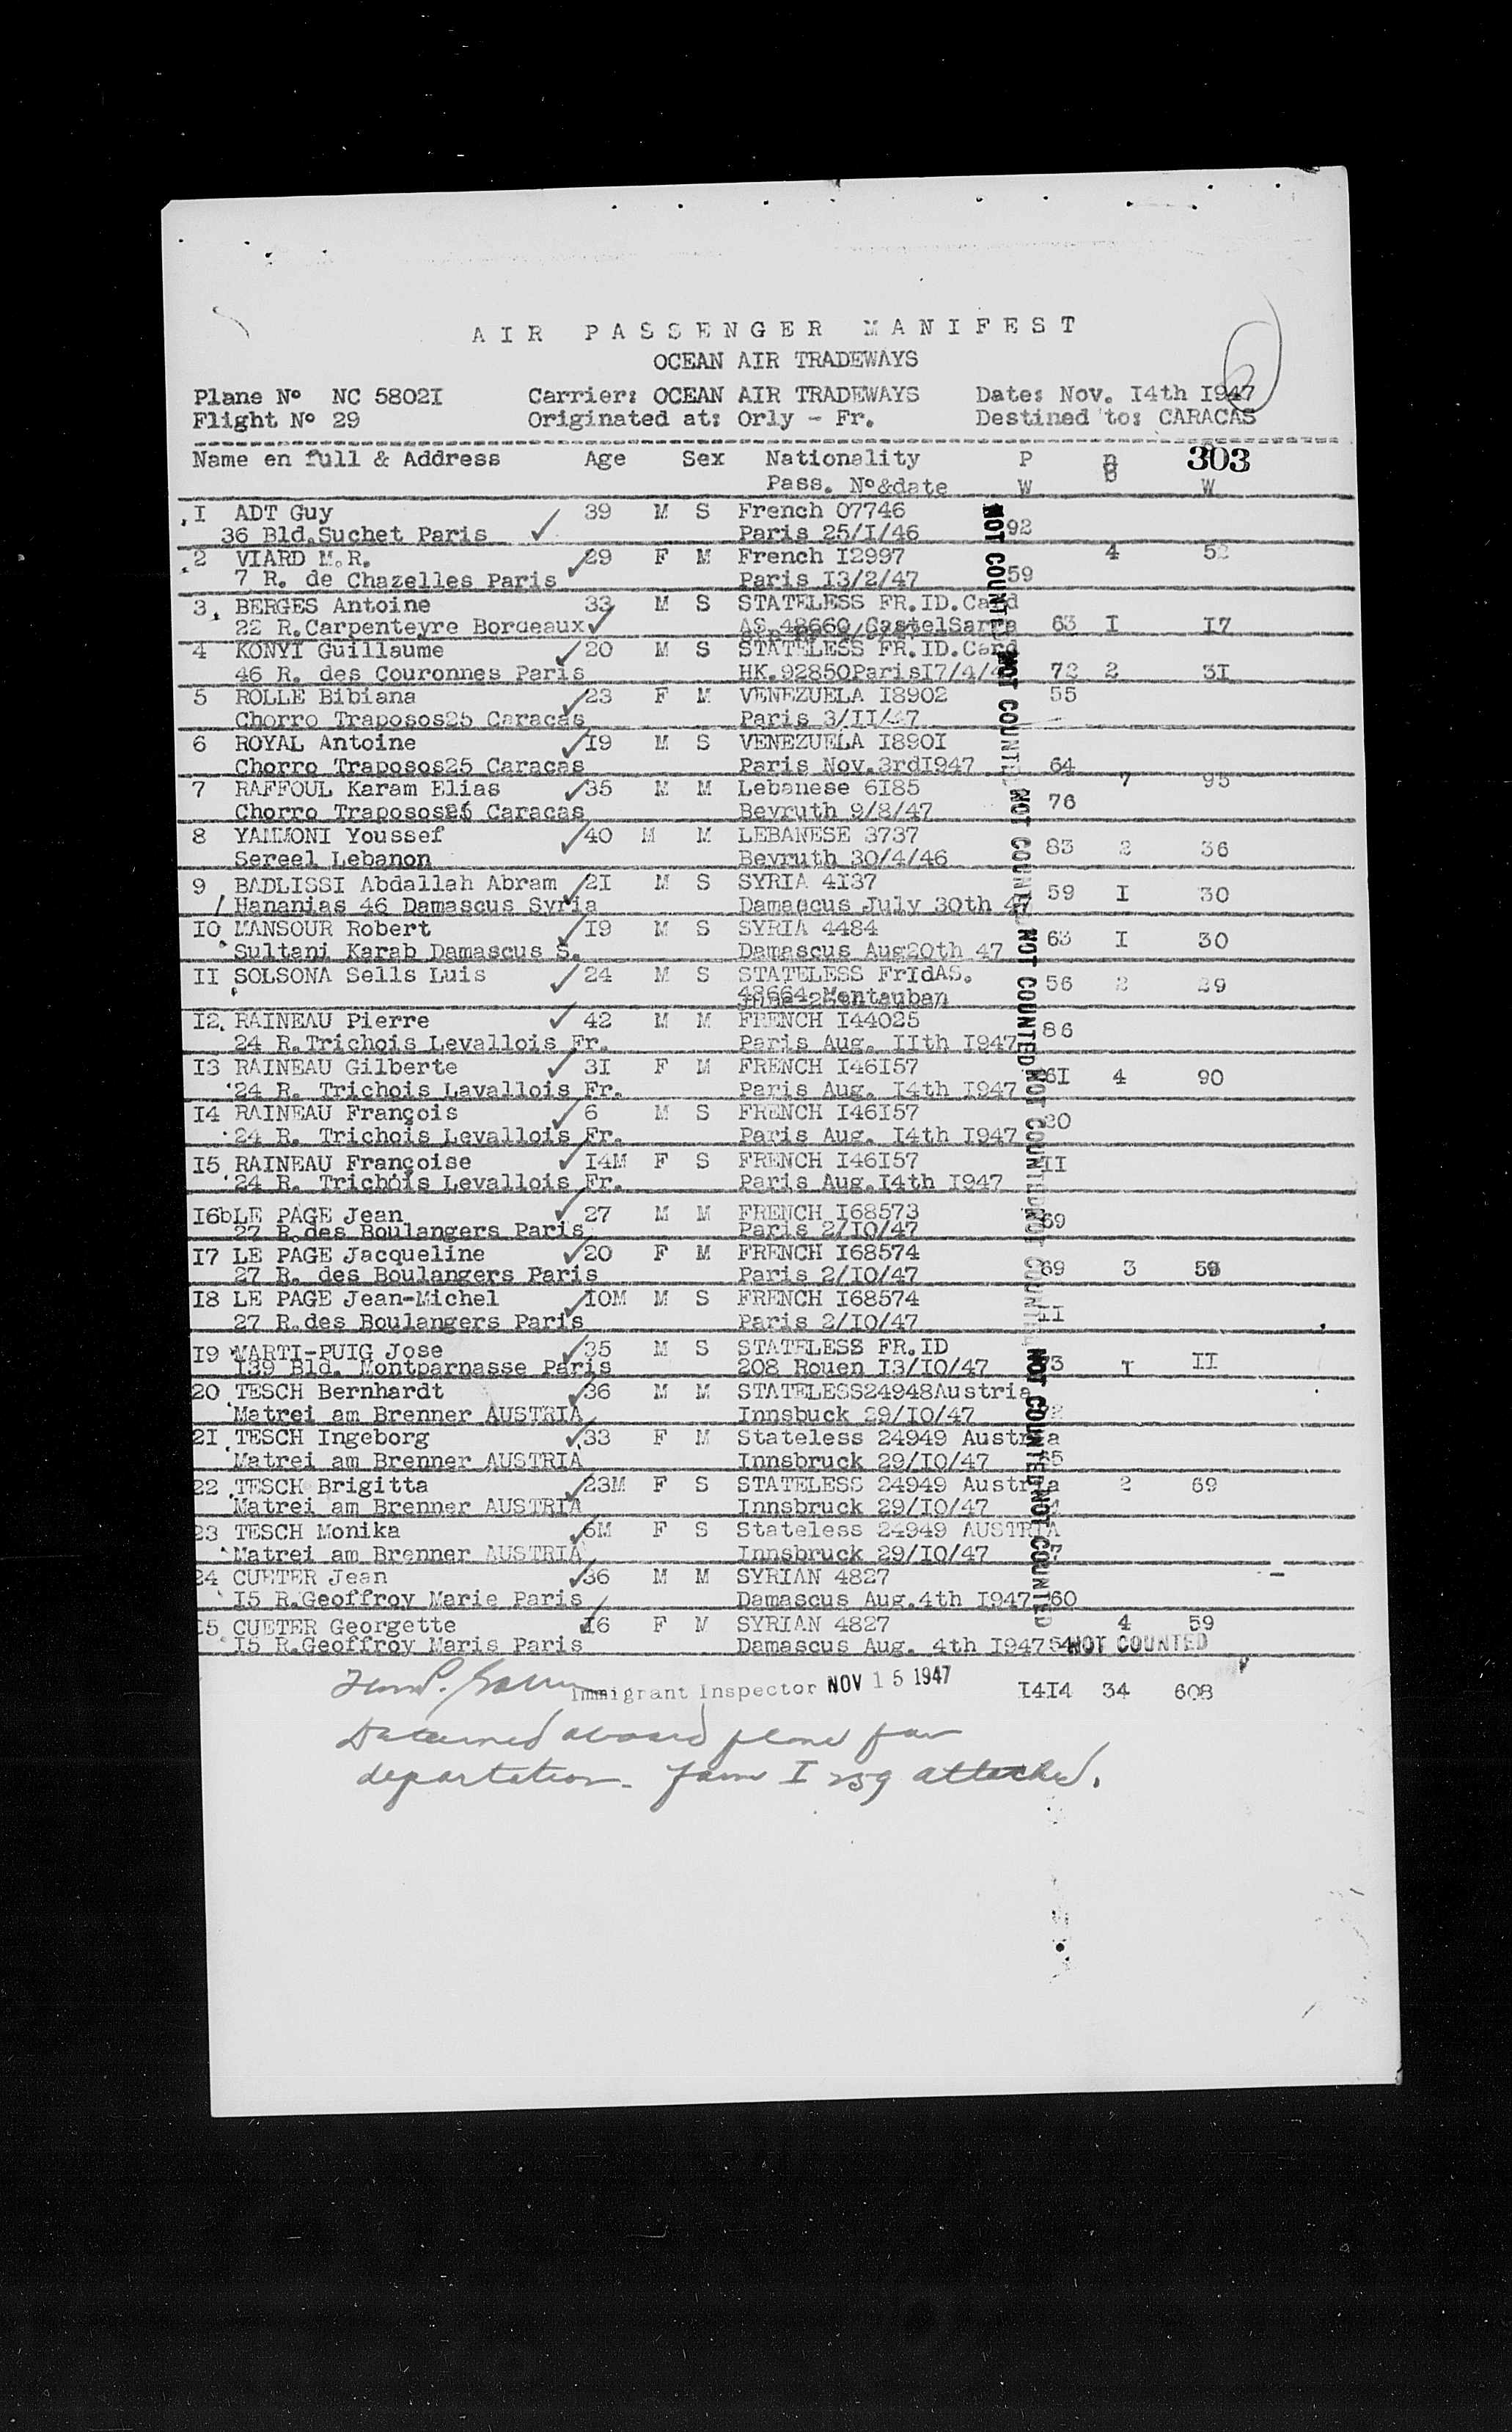 AIR PASSENGER MANIFEST
OCEAN AIR TRADEWAYS
Plane Nº NC 5802I Carrier: OCEAN AIR TRADEWAYS Date: Nov. I4th I947
Flight Nº 29 Originated at: Orly - Fr. Destined to: CARACAS
Name en full & Address Age Sex Nationality P B 303
Pass. Nº&date W W
I ADT Guy 39 M S French 07746
36 Bld.Suchet Paris Paris 25/I/46 92
2 VIARD M.R. 29 F M French I2997 4 52
7 R. de Chazelles Paris Paris I3/2/47 59
3. BERGES Antoine 33 M S STATELESS FR.ID.Card
22 R.Carpenteyre Bordeaux AS.48660 CastelSarra 63 I I7
4 KONYI Guillaume 20 M S STATELESS FR.ID.Card
46 R. des Couronnes Paris HK.92850ParisI7/4/4 72 2 3I
5 ROLLE Bibiana 23 F M VENEZUELA I8902 55
Chorro Traposos25 Caracas Paris 3/II/47
6 ROYAL Antoine I9 M S VENEZUELA I890I
Chorro Traposos25 Caracas Paris Nov.3rdI947 64
7 RAFFOUL Karam Elias 35 M M Lebanese 6I85 7 95
Chorro Traposos25 Caracas Beyruth 9/8/47 76
8 YAMMONI Youssef 40 M M LEBANESE 3737
Sereel Lebanon Beyruth 30/4/46 83 2 36
9 BADLISSI Abdallah Abram 2I M S SYRIA 4I37
Hananias 46 Damascus Syria Damascus July 30th 47 59 I 30
IO MANSOUR Robert I9 M S SYRIA 4484
Sultani Karab Damascus S. Damascus Aug20th 47 63 I 30
II SOLSONA Sells Luis 24 M S STATELESS FrIdAS.
48664 Montauban 56 2 29
I2. RAINEAU Pierre 42 M M FRENCH I44025
24 R.Trichois Levallois Fr. Paris Aug. IIth I947 86
I3 RAINEAU Gilberte 3I F M FRENCH I46I57
24 R. Trichois Lavallois Fr. Paris Aug. I4th I947 6I 4 90
I4 RAINEAU François 6 M S FRENCH I46I57
24 R. Trichois Levallois Fr. Paris Aug. I4th I947 20
I5 RAINEAU Françoise I4M F S FRENCH I46I57
24 R. Trichois Levallois Fr. Paris Aug.I4th I947 II
I6bLE PAGE Jean 27 M M FRENCH I68573
27 R.des Boulangers Paris Paris 2/IO/47 69
I7 LE PAGE Jacqueline 20 F M FRENCH I68574
27 R. des Boulangers Paris Paris 2/IO/47 69 3 59
I8 LE PAGE Jean-Michel IOM M S FRENCH I68574
27 R.des Boulangers Paris Paris 2/IO/47 II
I9 MARTI-PUIG Jose 35 M S STATELESS FR.ID
I39 Bld. Montparnasse Paris 208 Rouen I3/IO/47 I II
20 TESCH Bernhardt 36 M M STATELESS24948Austria
Matrei am Brenner AUSTRIA Innsbuck 29/IO/47
2I TESCH Ingeborg 33 F M Stateless 24949 Austria
Matrei am Brenner AUSTRIA Innsbruck 29/IO/47
22 TESCH Brigitta 23M F S STATELESS 24949 Austria 2 69
Matrei am Brenner AUSTRIA Innsbruck 29/IO/47
23 TESCH Monika 6M F S Stateless 24949 AUSTRIA
Matrei am Brenner AUSTRIA Innsbruck 29/IO/47
24 CUETER Jean 36 M M SYRIAN 4827
I5 R.Geoffroy Marie Paris Damascus Aug.4th I947 60
25 CUETER Georgette I6 F M SYRIAN 4827 4 59
I5 R.Geoffroy Maris Paris Damascus Aug. 4th I947 54 NOT COUNTED
NOT COUNTED NOT COUNTED NOT COUNTED NOT COUNTED NOT COUNTED NOT COUNTED NOT COUNTED NOT COUNTED
Immigrant Inspector NOV 15 1947 I4I4 34 608
Detained aboard plane for
deportation. Form I 259 attached.